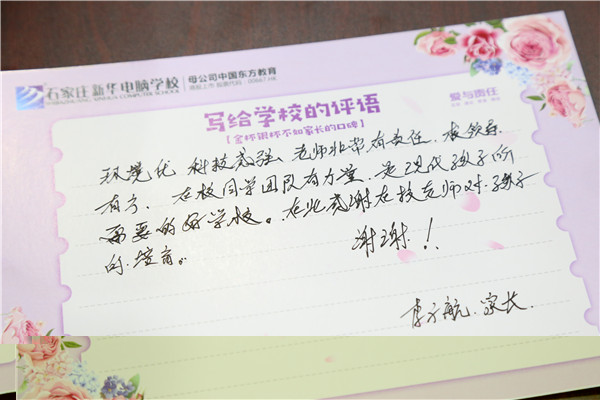 石家庄新华电脑学校
SHIJIAZHUANG XINHUA COMPUTER SCHOOL
母公司中国东方教育
港股上市 股票代码:00667.HK
写给学校的评语
【金杯银杯不如家长的口碑】
爱与责任
环境优 科技感强、老师非常有责任. 校领导
有方. 在校同学团队有力量. 是现代孩子所
需要的好学校。在此感谢在校老师对孩子
的培育。
谢谢!!
李方航 家长.